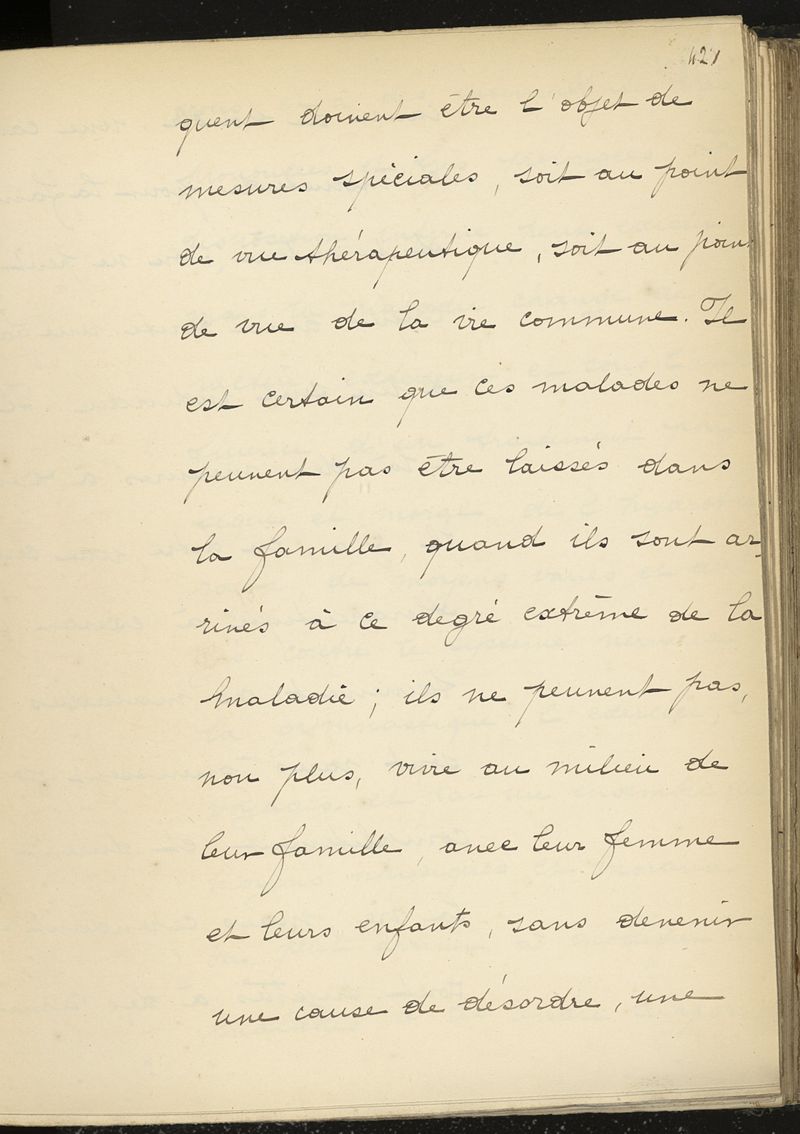 421
quent doivent être l'objet de
mesures spéciales, soit au point
de vue thérapeutique, soit au poin
de vue de la vie commune. Il
est certain que ces malades ne
peuvent pas être laissés dans
la famille, quand ils sont ar-
rivés à ce degré extrême de la
maladie ; ils ne peuvent pas,
non plus, vivre au milieu de
leur famille, avec leur femme
et leurs enfants, sans devenir
une cause de désordre, une